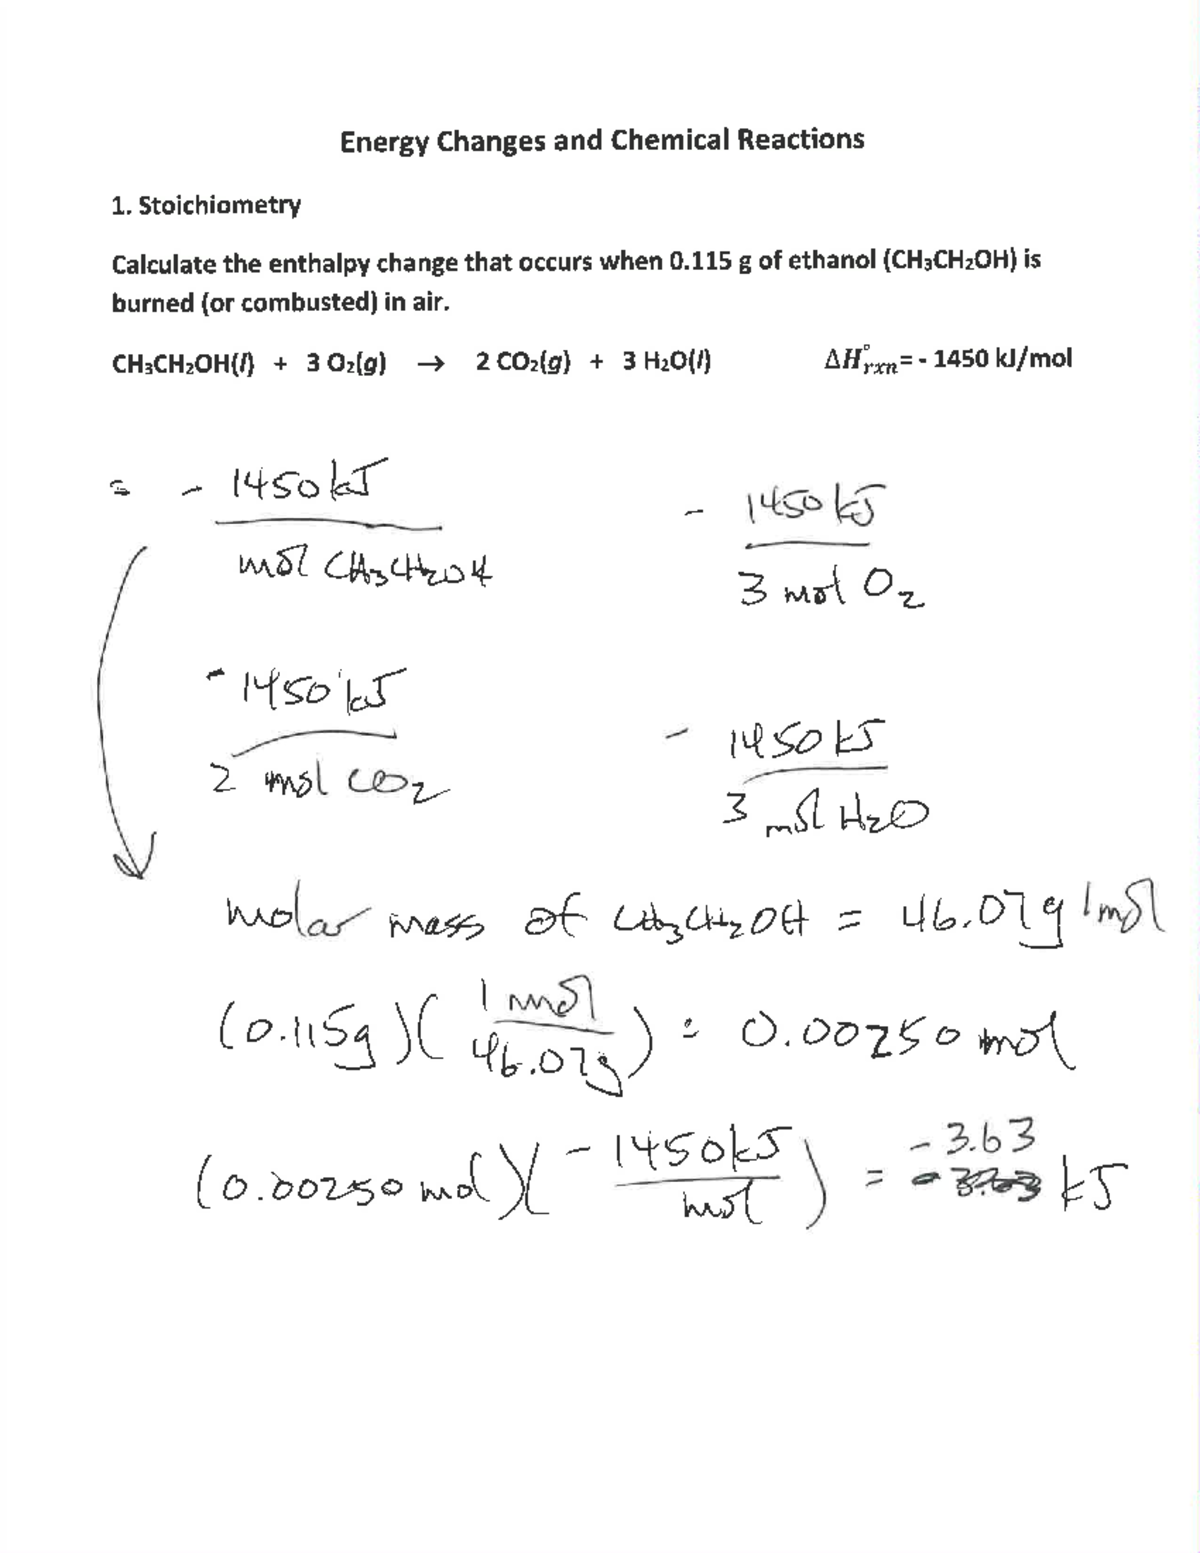 Energy Changes and Chemical Reactions
1. Stoichiometry
Calculate the enthalpy change that occurs when 0.115 g of ethanol (CH₃CH₂OH) is
burned (or combusted) in air.
CH₃CH₂OH(l) + 3 O₂(g) → 2 CO₂(g) + 3 H₂O(l) ΔH°rxn= - 1450 kJ/mol
= - 1450 kJ
mol CH₃CH₂OH
- 1450 kJ
3 mol O₂
- 1450 kJ
2 mol CO₂
- 1450 kJ
3 mol H₂O
molar mass of CH₃CH₂OH = 46.07g/mol
(0.115g)(1 mol/46.07g) = 0.00250 mol
(0.00250 mol)(-1450kJ/mol) = -3.63 kJ